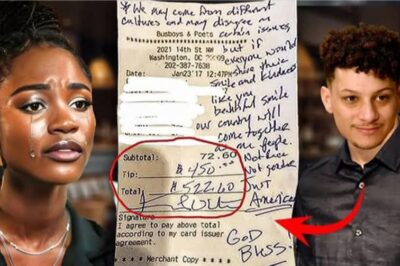 *We may come from different
cultures and may disagree on
certain issues,
Busboys & Poets
2021 14th St NW but if
Washington, DC 20009 everyone would
202-387-7638 share their
Date: Jan23'17 12:47PM smile and kindness
like your
beautiful smile
our country will
come together
as one people.
Not race
Not gender
Just
American
Subtotal: 72.60
Tip: $ 450.00
Total: $ 522.60
Signature
I agree to pay above total
according to my card issuer
agreement.
God
Bless.
* * * * Merchant Copy * * * *